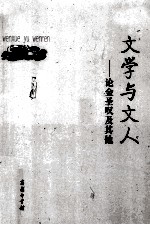 wenxue yu wenren
文学与文人
——论金圣叹及其他